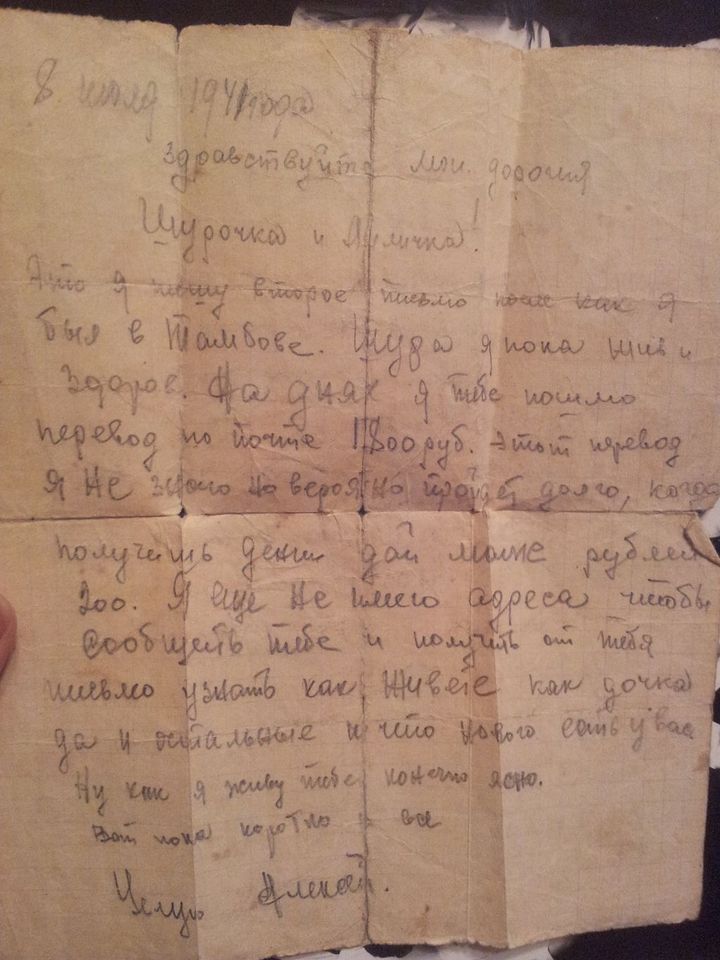 8 июля 1941 года
Здравствуйте мои дорогия
Шурочка и Лиличка!
Это я пишу второе письмо после как я
был в Тамбове. Шура я пока жив и
здоров. На днях я тебе пошлю
перевод по почте 1800 руб. Этот перевод
я не знаю но вероятно пройдет долго, когда
получишь деньги дай маме рублей
300. Я еще не имею адреса чтобы
сообщить тебе и получить от тебя
письмо узнать как живете как дочка
да и остальные и что нового есть у вас
Ну как я живу тебе конечно ясно.
Вот пока коротко и все
Целую Алексей.